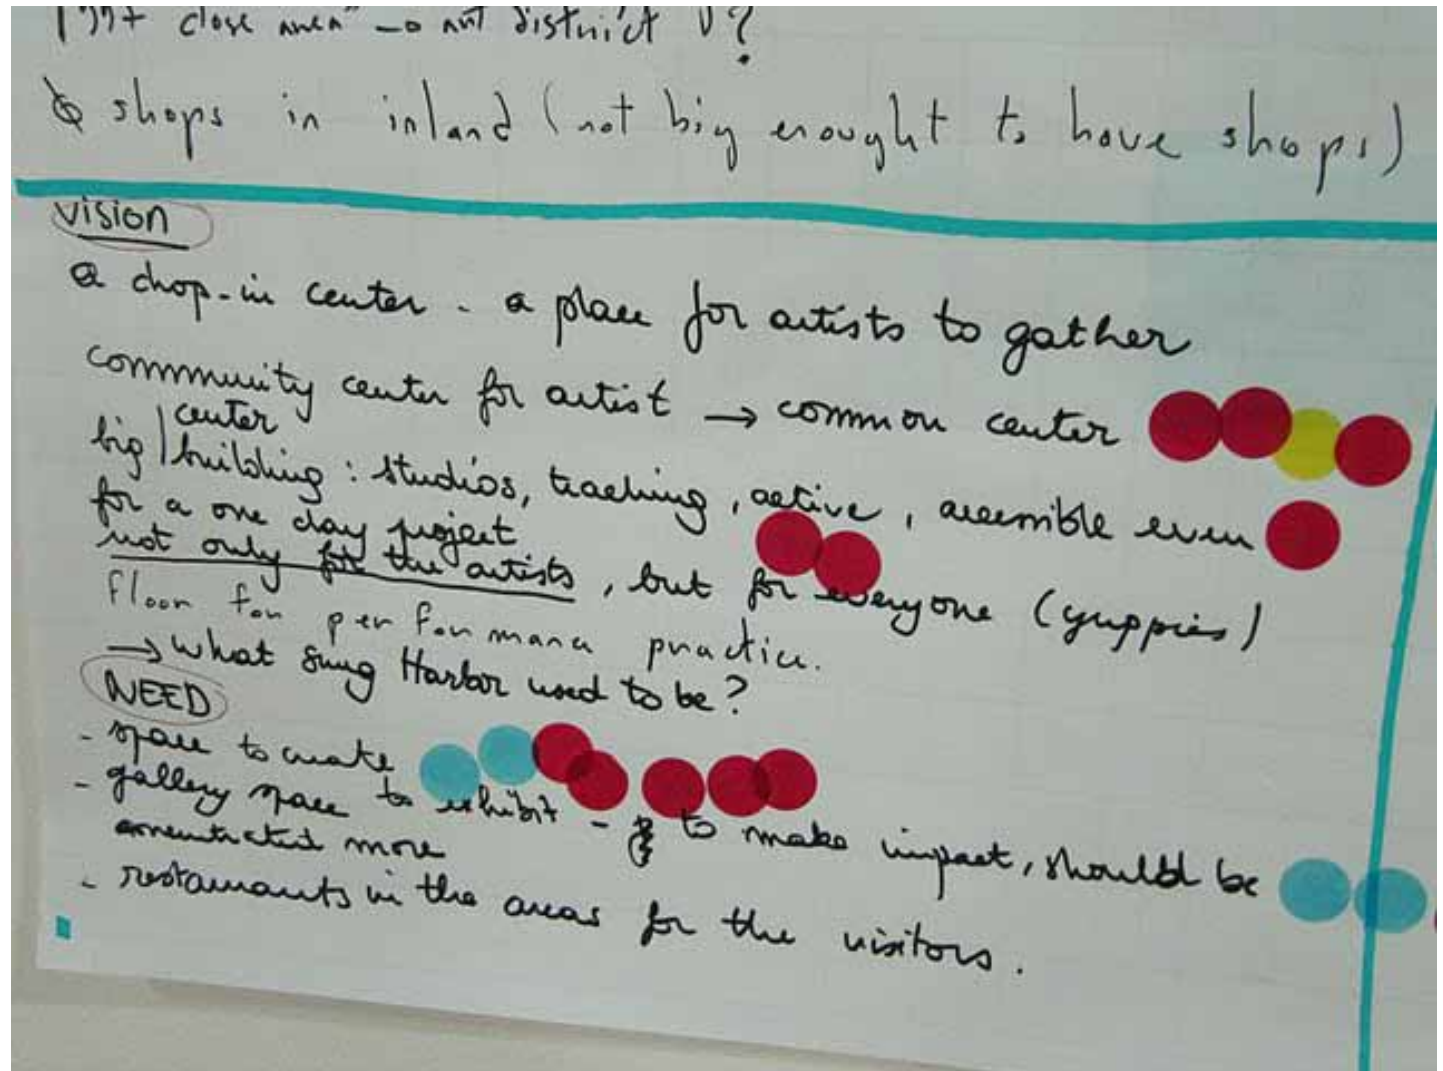 close area" → art district ?
shops in inland (not big enought to have shops)
vision
a drop-in center - a place for artists to gather
community center for artist → common center
center
big | building : studios, teaching, active, accessible even
for a one day project
not only for the artists, but for everyone (yuppies)
floor for performance practice.
→ what Snug Harbor used to be?
NEED
- space to create
- gallery space to exhibit - to make impact, should be
concentrated more
- restaurants in the areas for the visitors.